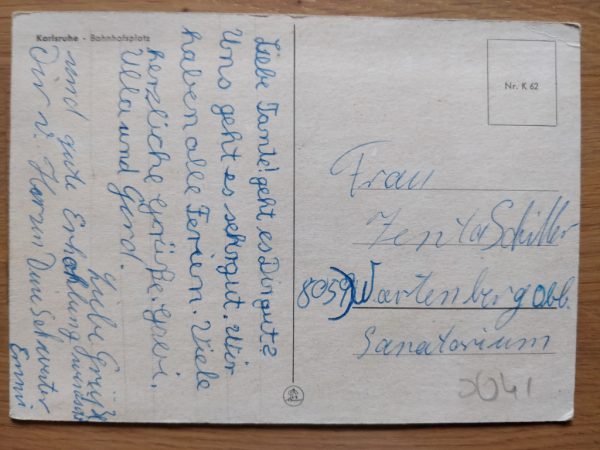 Karlsruhe - Bahnhofsplatz
Liebe Tante! geht es Dir gut?
Uns geht es sehr gut. Wir
haben alle Ferien. Viele
herzliche Grüße. Gabi.
Ulla und Gerd.
Liebe Grüße
und gute Erholung wünscht
Dir v. Herzen Deine Schwester
Emmi
Nr. K 62
Frau
Zenta Schiller
8059 Wartenberg Obb.
Sanatorium